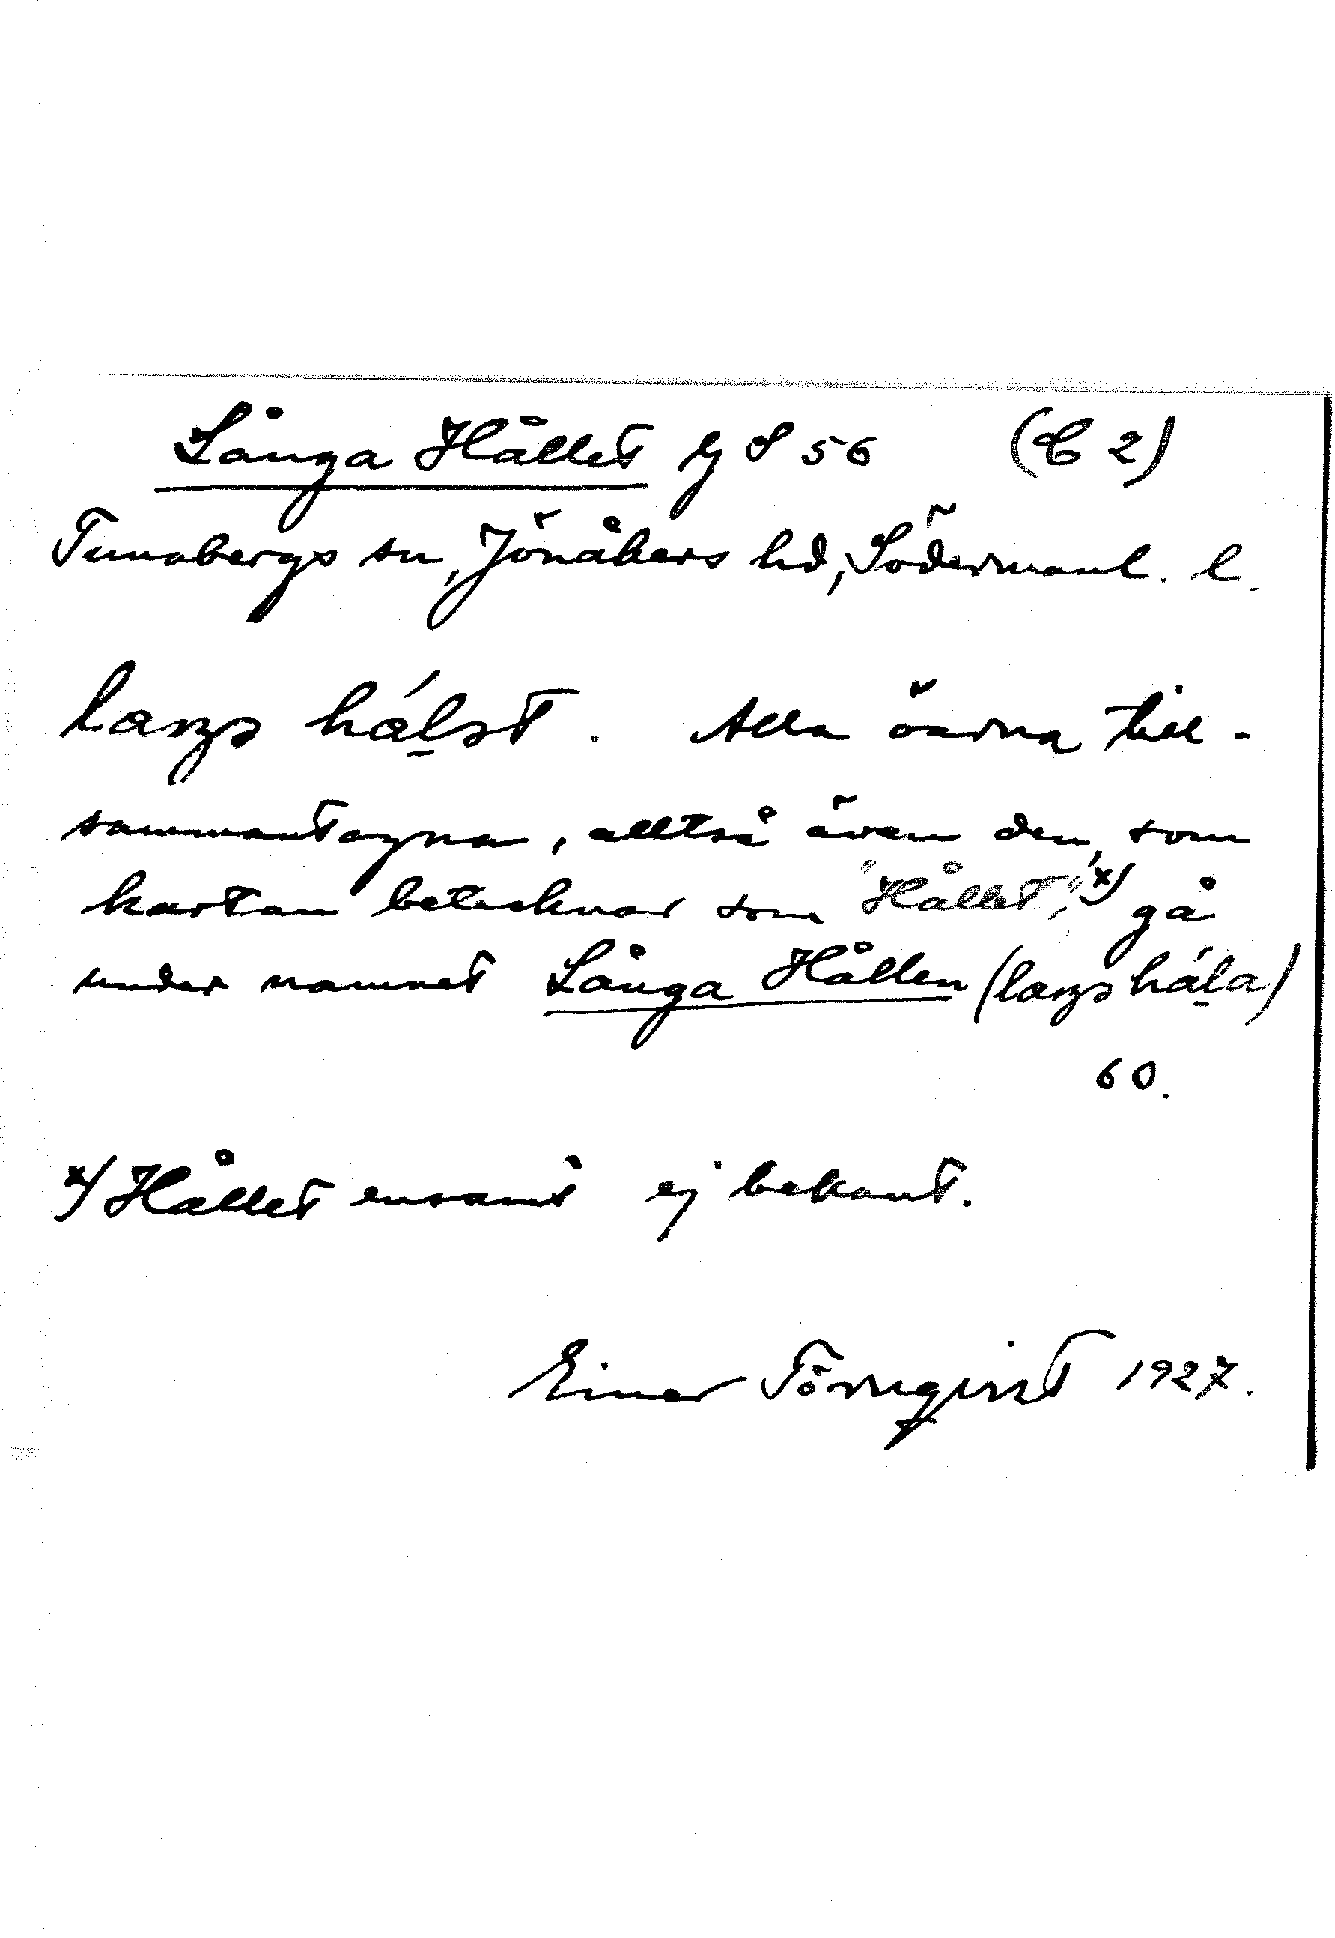 Långa Hållet lg S 56 (C 2)
Tunabergs sn, Jönåkers hd, Södermanl. l.
hálət. Alla öarna till-
sammantagna, alltså även den, som
kartan betecknar som "Hållet",x) gå
under namnet Långa Hållen (hála)
60.
x) Hållet ensamt ej bekant.
Einar Törnqvist 1927.